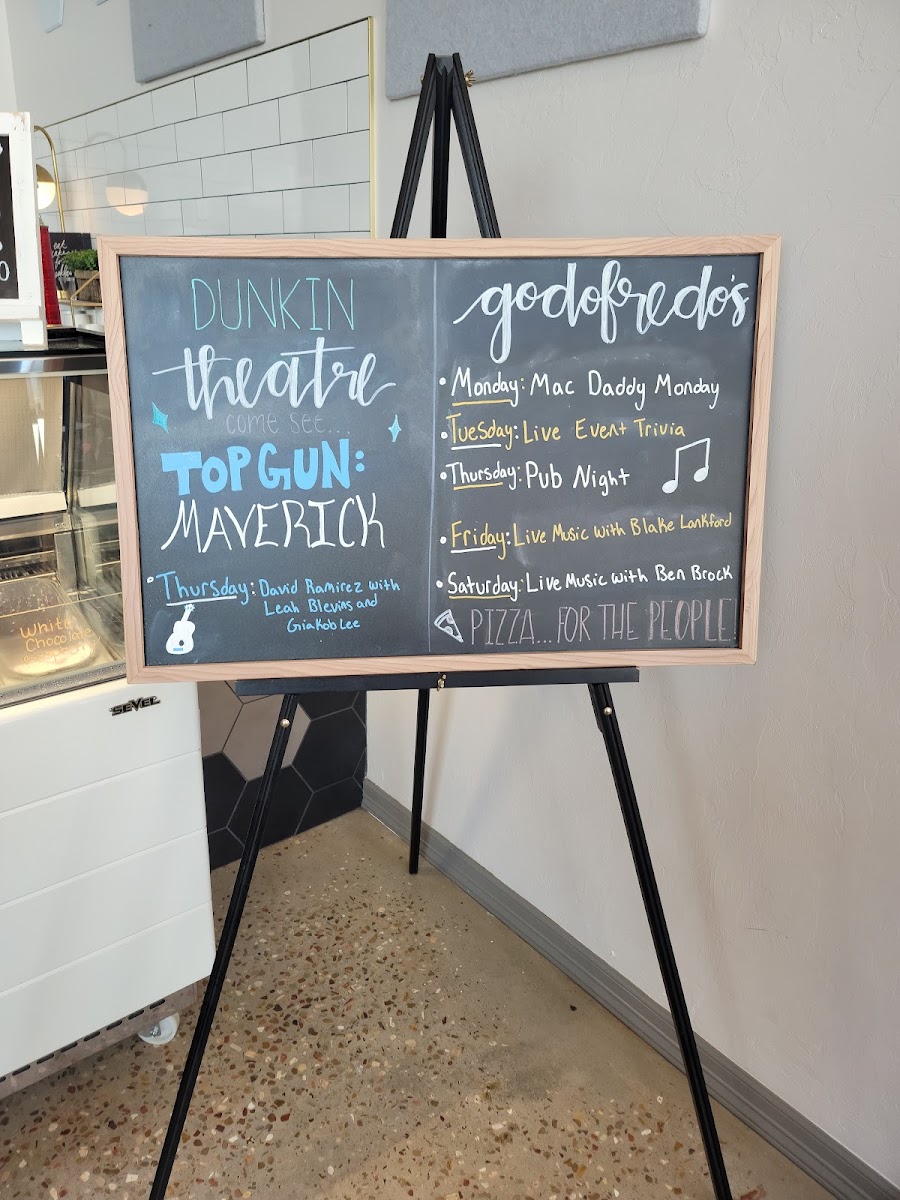 DUNKIN
theatre
come see...
TOP GUN:
MAVERICK
• Thursday: David Ramirez with
Leah Blevins and
Giakob Lee
godofredo's
• Monday: Mac Daddy Monday
• Tuesday: Live Event Trivia
• Thursday: Pub Night
• Friday: Live Music with Blake Lankford
• Saturday: Live Music with Ben Brock
PIZZA... FOR THE PEOPLE
White
Chocolate
SEVEL